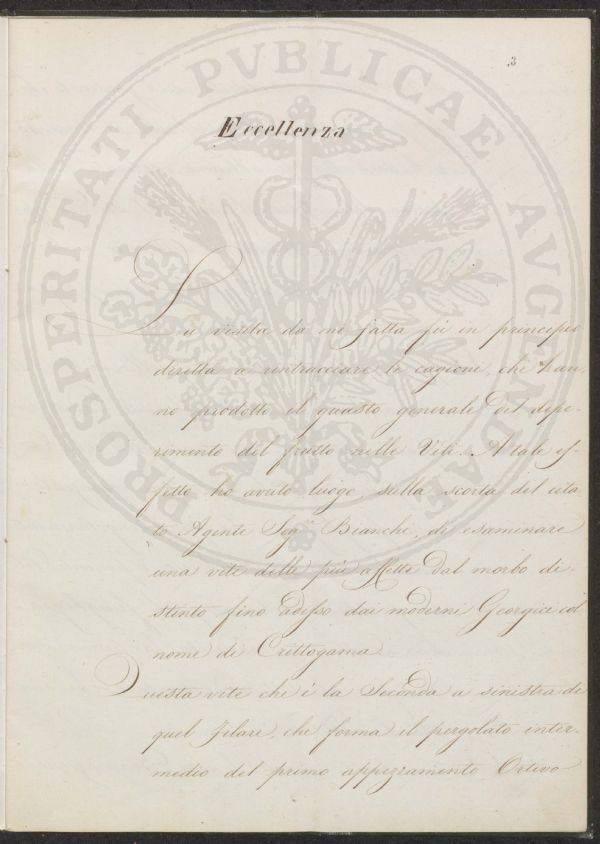 3
PROSPERITATI PVBLICAE AVGENDAE
Eccellenza
La visita da me fatta fù in principio
diretta a rintracciare le cagioni, che han,
no prodotto il guasto generale del depe-
rimento del frutto nelle Viti. A tale ef-
fetto ho avuto luogo, sulla scorta del cita-
to Agente Sig.r Bianchi, di esaminare
una vite delle più affette dal morbo di-
stinto fino adesso dai moderni Georgici col
nome di Crittogama
Questa vite che è la Seconda a sinistra di
quel Filare, che forma il pergolato inter-
medio del primo appezzamento Ortivo